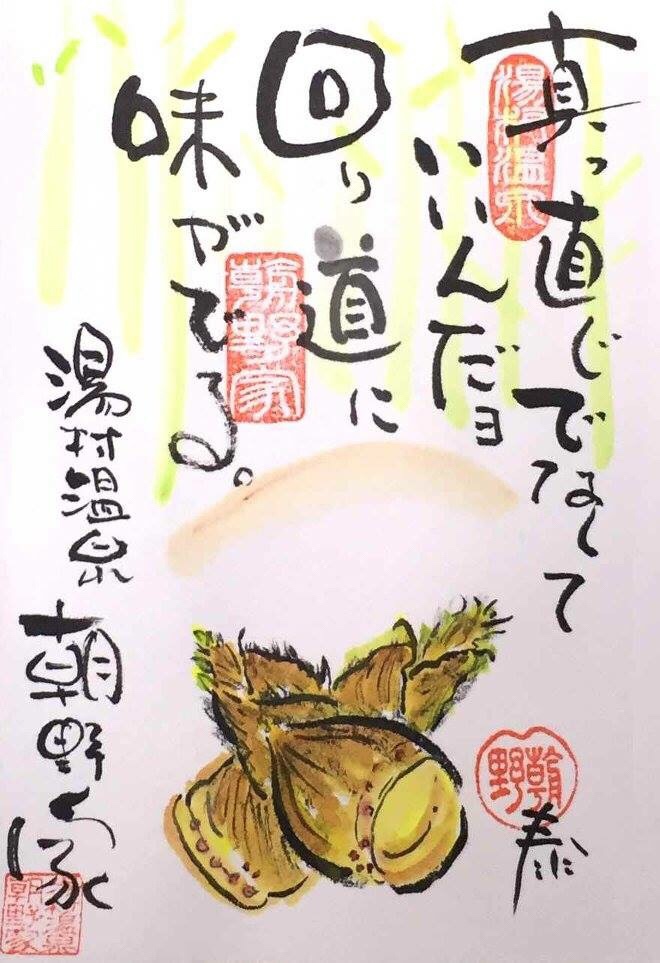 真っ直ぐでなくて
いいんだヨ
回り道に
味がでる。
湯村温泉
朝野家
湯村温泉
朝野家
朝野
泰